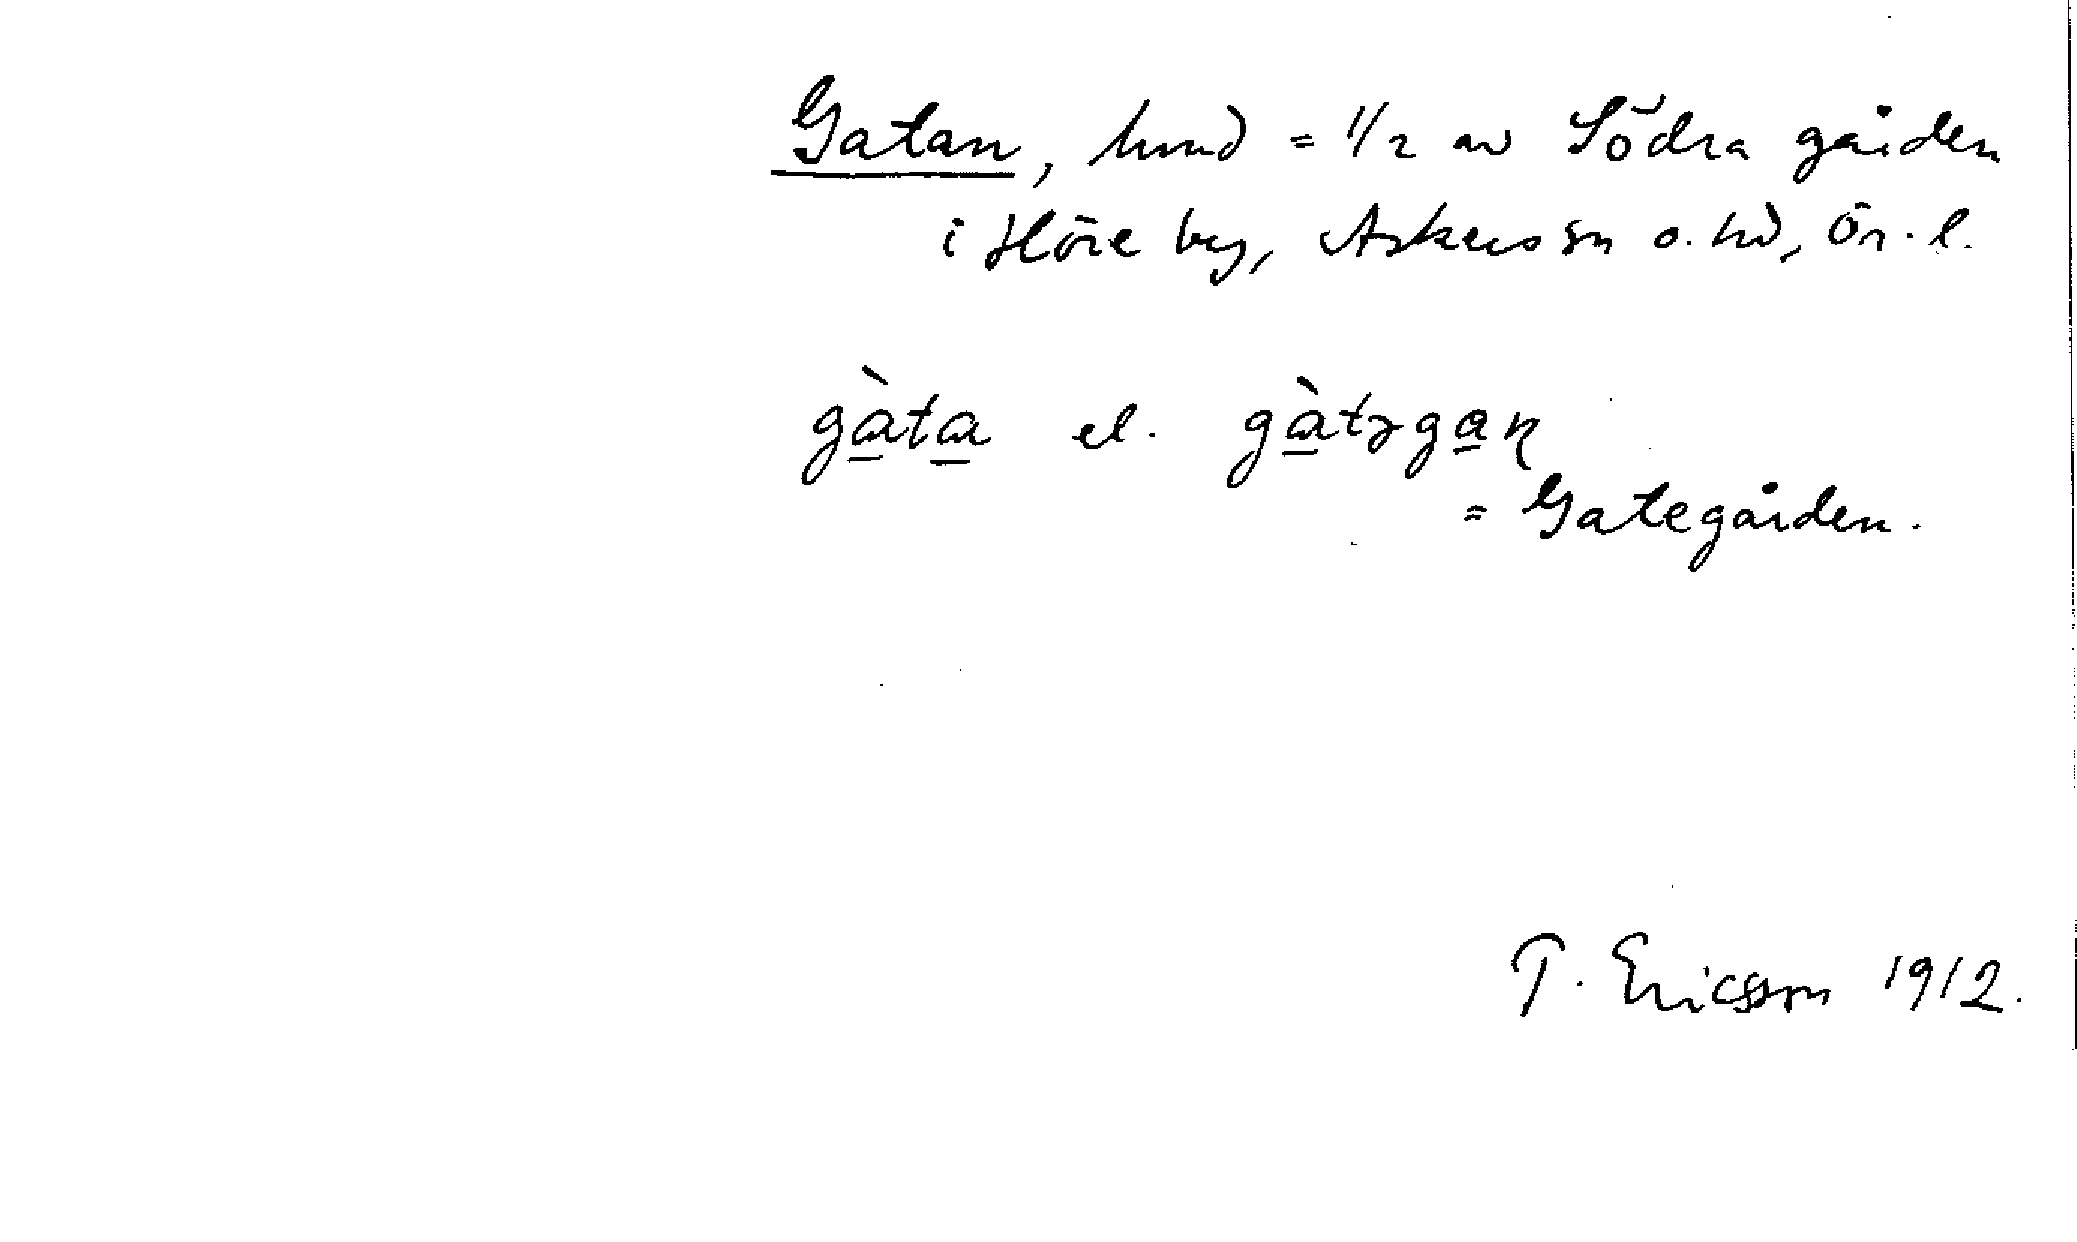 Gatan, hmd = 1/2 av Södra gården
i Höre by, Askers sn o. hd, Ör. l.
gàta el. gàtəgaɳ
= Gategården.
T. Ericsson 1912.